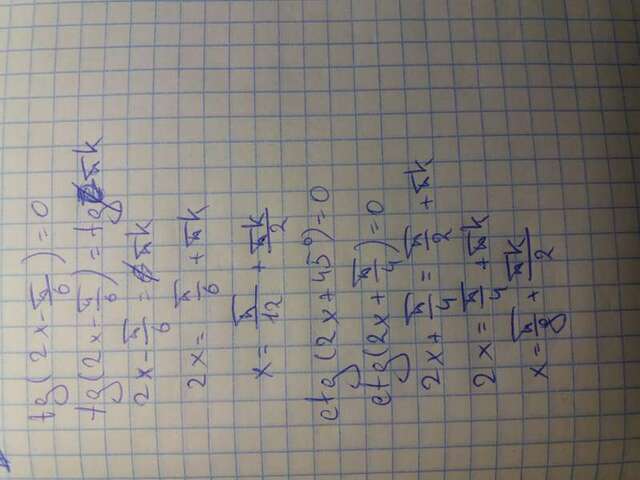 tg(2x - π/6) = 0
tg(2x - π/6) = tg πk
2x - π/6 = πk
2x = π/6 + πk
x = π/12 + πk/2
ctg(2x + 45°) = 0
ctg(2x + π/4) = 0
2x + π/4 = π/2 + πk
2x = π/4 + πk
x = π/8 + πk/2